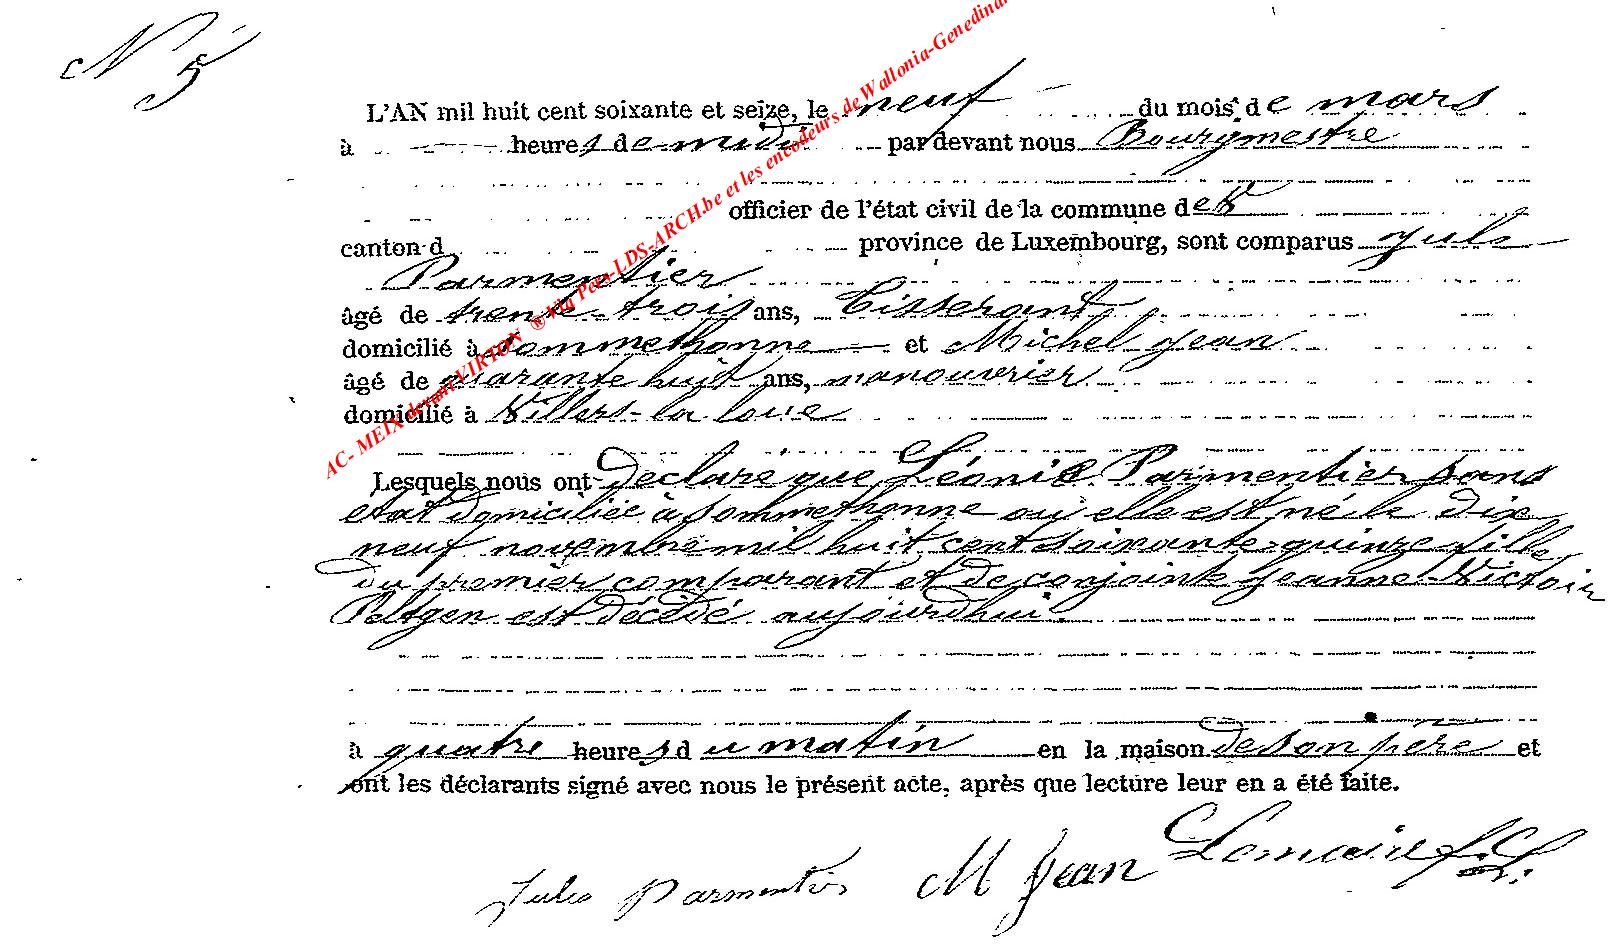 N 5
L'AN mil huit cent soixante et seize, le neuf du mois de mars
à heures de midi par devant nous Bourgmestre
officier de l'état civil de la commune de V
canton d province de Luxembourg, sont comparus Jule
Parmentier
âgé de trente-trois ans, Tisserant
domicilié à Sommethonne et Michel Jean
âgé de quarante huit ans, manouvrier
domicilié à Villers-la-loue
Lesquels nous ont déclaré que Léonie Parmentier sans
etat domiciliée à Sommethonne où elle est né le dix
neuf novembre mil huit cent soixante-quinze fille
du premier comparant et de conjointe Jeanne Victoir
Peltgen est décédé aujourdhui
à quatre heures du matin en la maison de son père et
ont les déclarants signé avec nous le présent acte, après que lecture leur en a été faite.
Jules Parmentier M Jean Lemaire
AC- MEIX devant VIRTON ® Via Pers-LDS-ARCH.be et les encodeurs de Wallonia-Genedinar